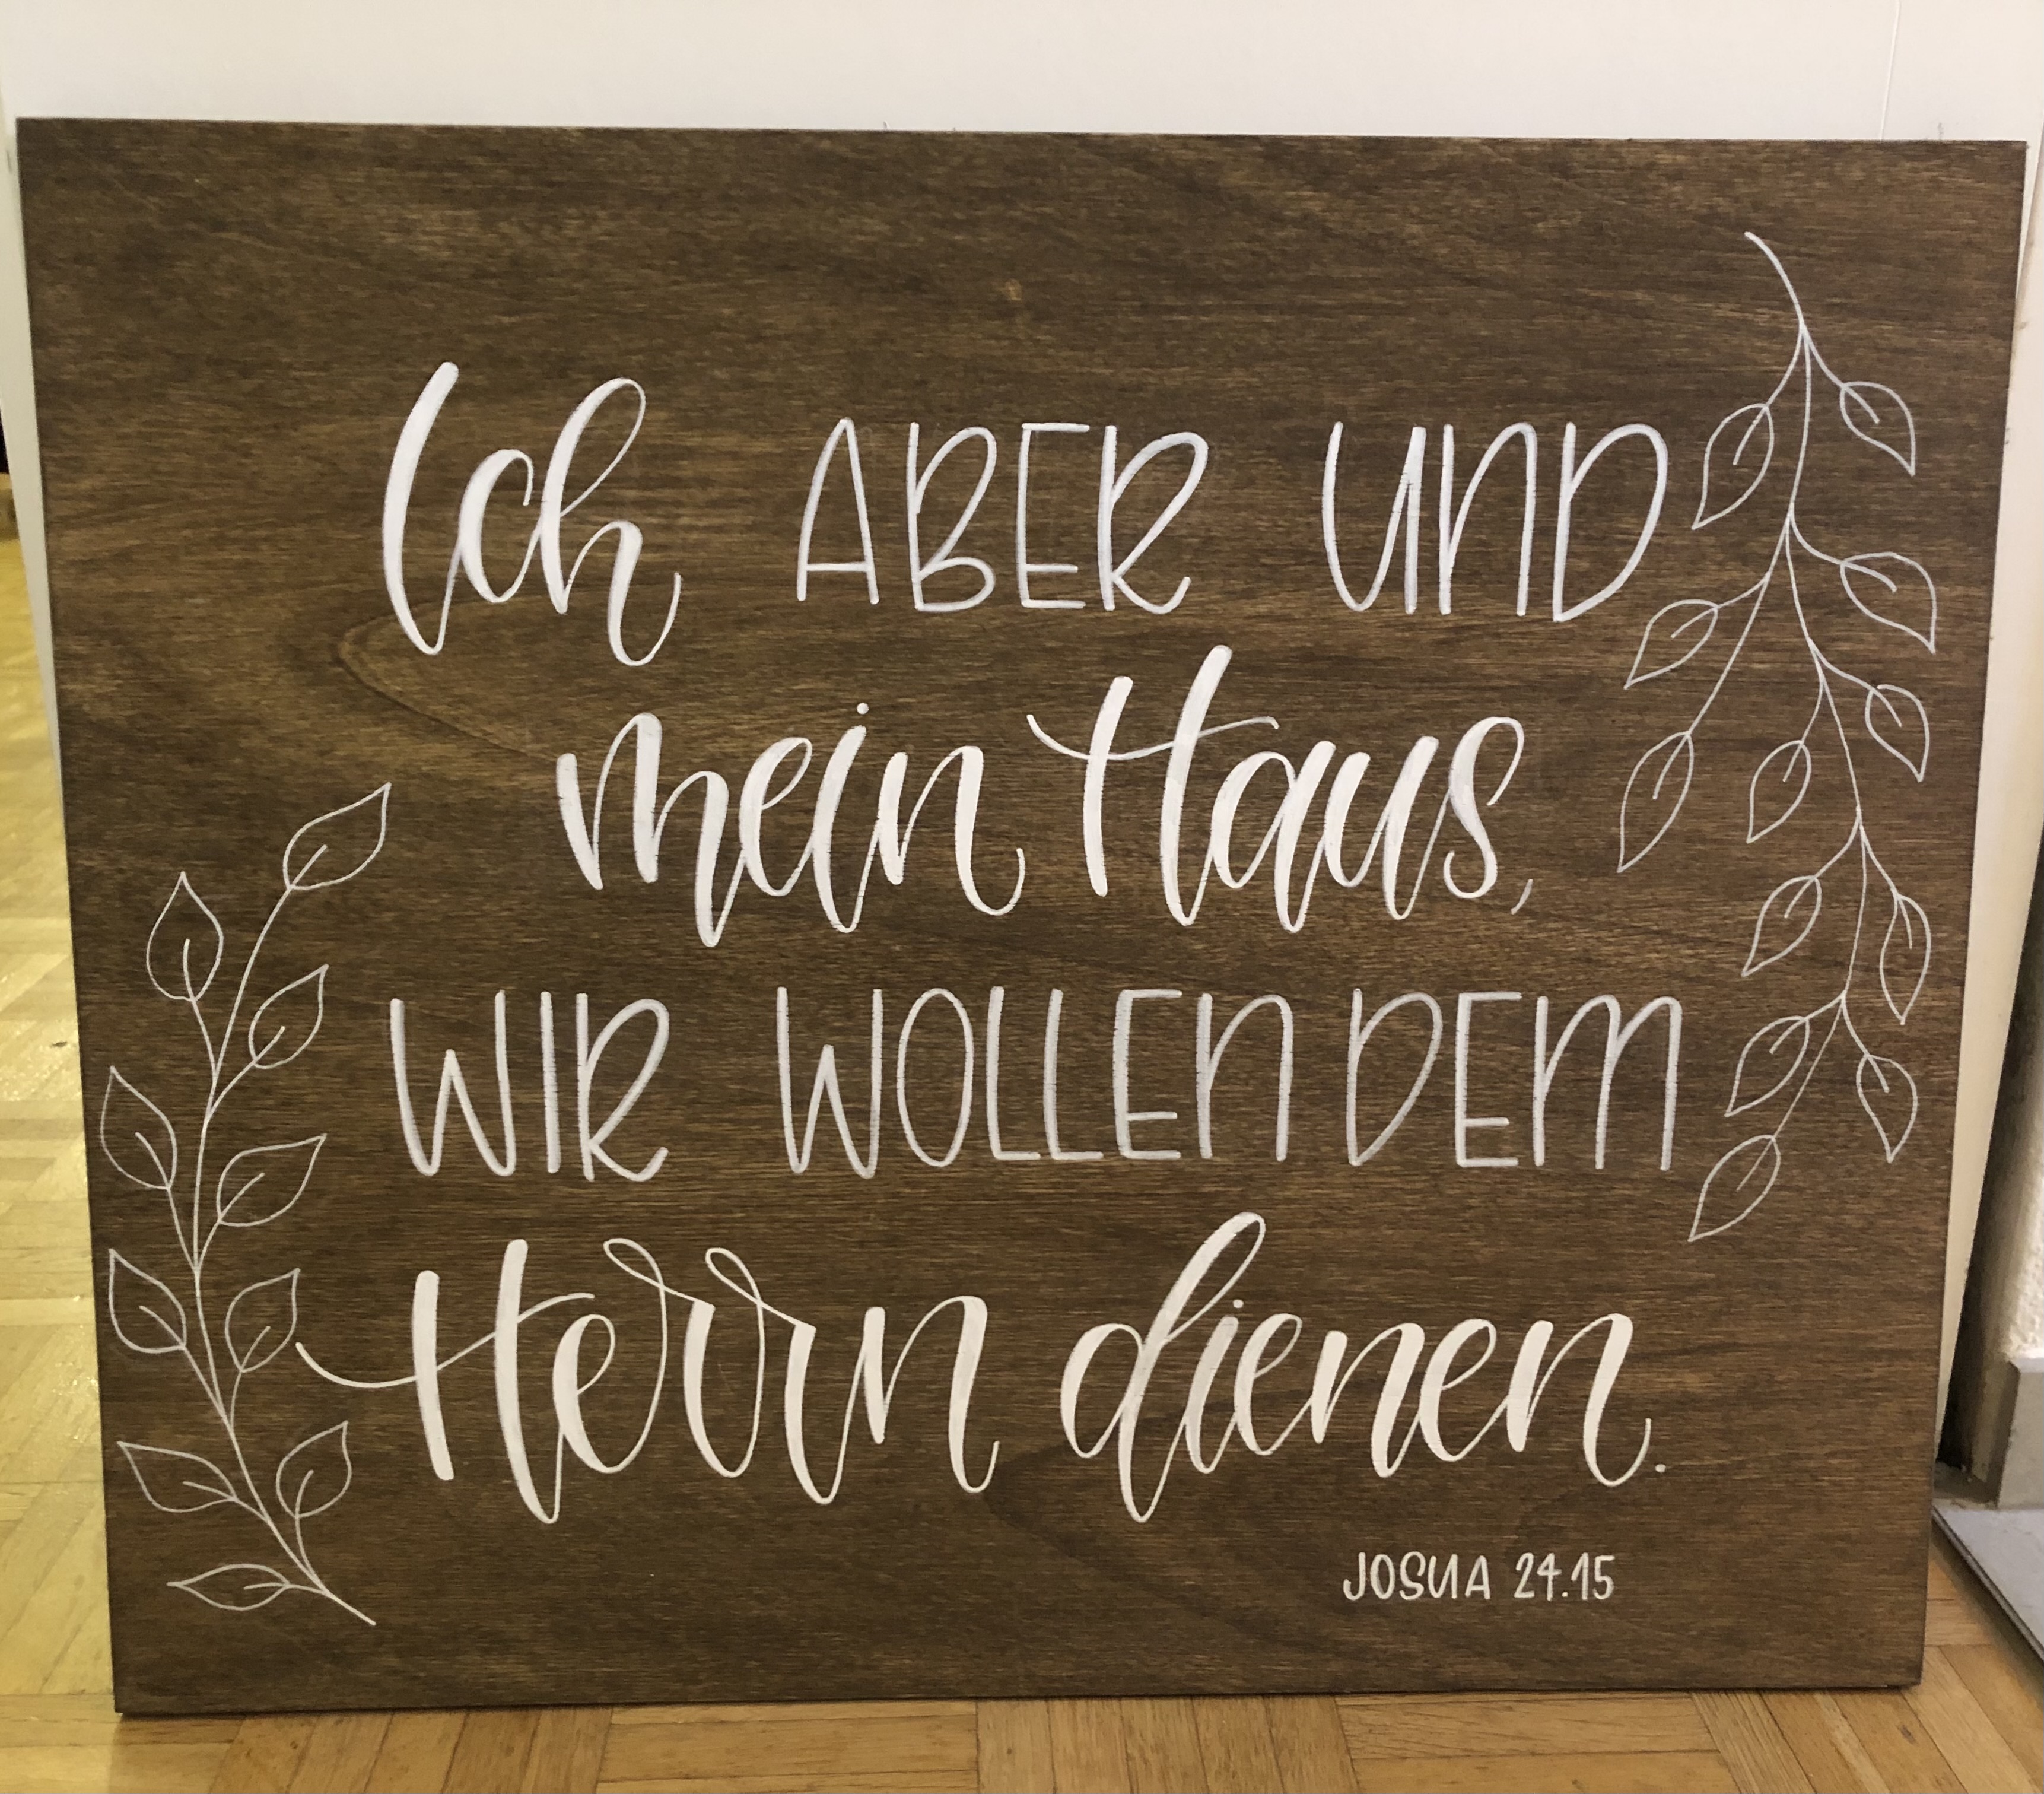 Ich ABER UND
mein Haus,
WIR WOLLEN DEM
Herrn dienen.
JOSUA 24.15